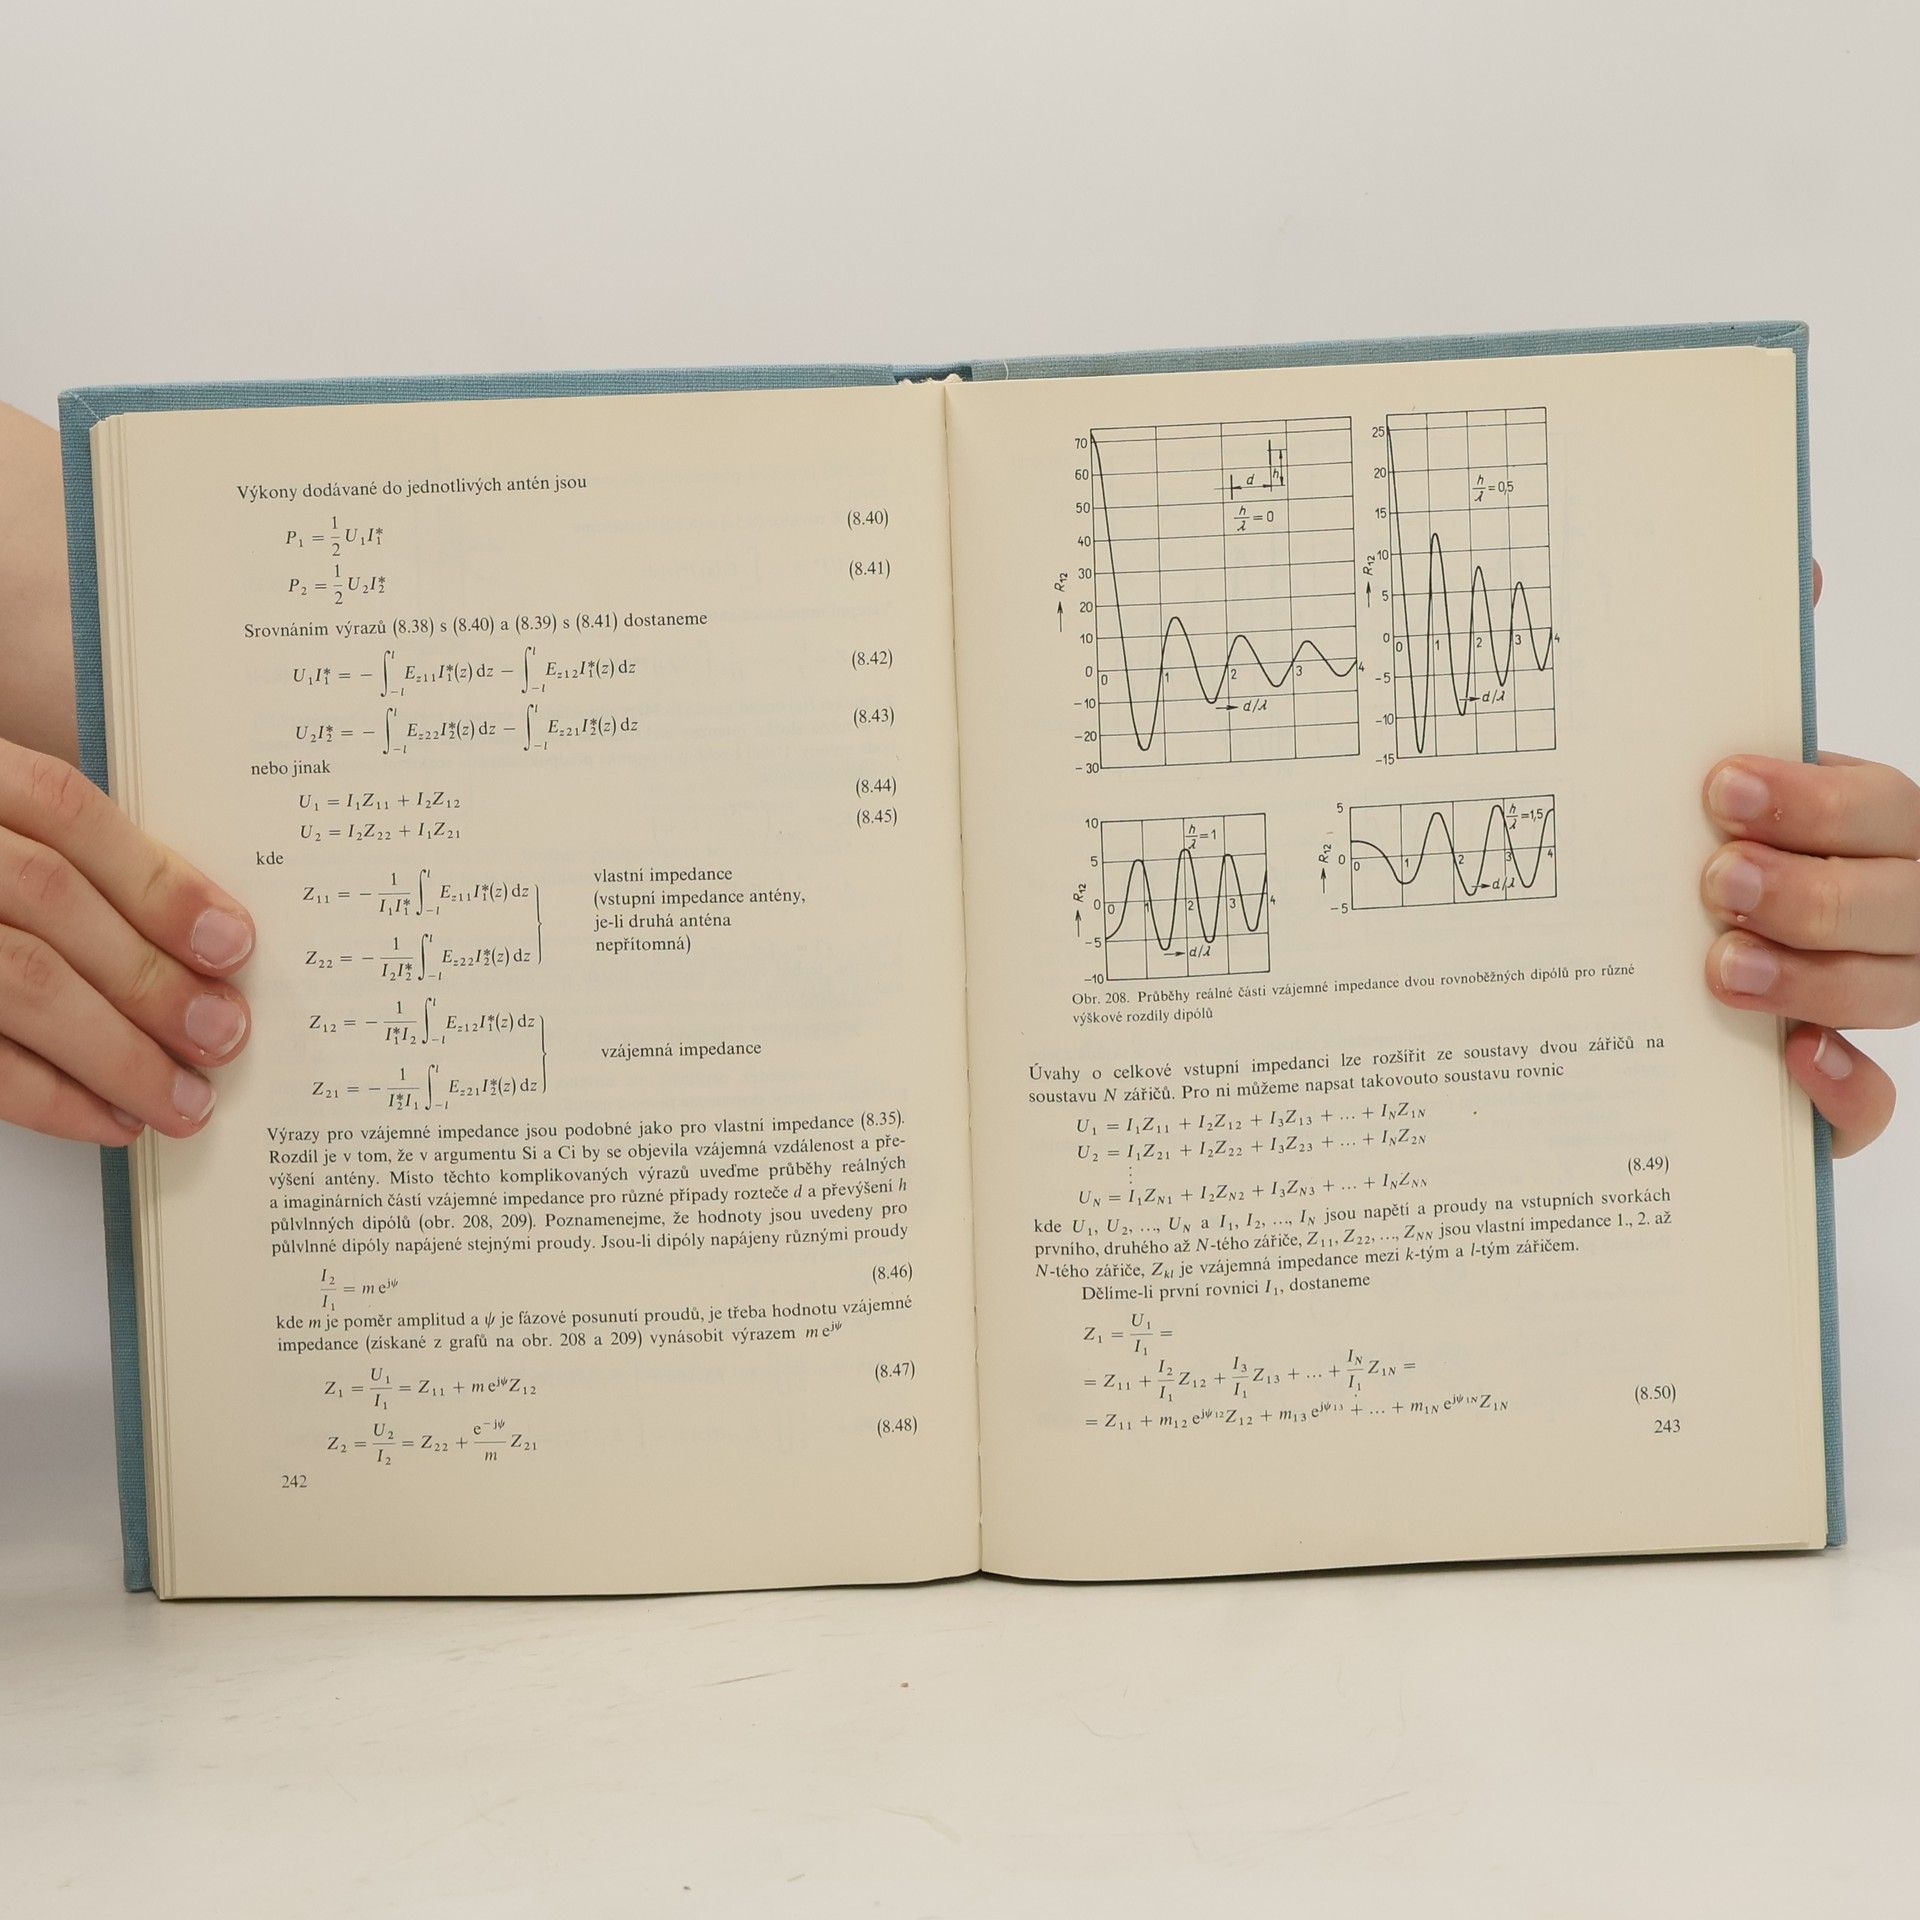 Výkony dodávané do jednotlivých antén jsou
P₁ = 1/2 U₁I₁* (8.40)
P₂ = 1/2 U₂I₂* (8.41)
Srovnáním výrazů (8.38) s (8.40) a (8.39) s (8.41) dostaneme
U₁I₁* = − ∫₋ₗˡ E_z11 I₁*(z) dz − ∫₋ₗˡ E_z12 I₁*(z) dz (8.42)
U₂I₂* = − ∫₋ₗˡ E_z22 I₂*(z) dz − ∫₋ₗˡ E_z21 I₂*(z) dz (8.43)
nebo jinak
U₁ = I₁Z₁₁ + I₂Z₁₂ (8.44)
U₂ = I₂Z₂₂ + I₁Z₂₁ (8.45)
kde
Z₁₁ = − 1/(I₁I₁*) ∫₋ₗˡ E_z11 I₁*(z) dz
Z₂₂ = − 1/(I₂I₂*) ∫₋ₗˡ E_z22 I₂*(z) dz
vlastní impedance
(vstupní impedance antény,
je-li druhá anténa
nepřítomná)
Z₁₂ = − 1/(I₁*I₂) ∫₋ₗˡ E_z12 I₁*(z) dz
Z₂₁ = − 1/(I₂*I₁) ∫₋ₗˡ E_z21 I₂*(z) dz
vzájemná impedance
Výrazy pro vzájemné impedance jsou podobné jako pro vlastní impedance (8.35).
Rozdíl je v tom, že v argumentu Si a Ci by se objevila vzájemná vzdálenost a pře-
výšení antény. Místo těchto komplikovaných výrazů uveďme průběhy reálných
a imaginárních částí vzájemné impedance pro různé případy rozteče d a převýšení h
půlvlnných dipólů (obr. 208, 209). Poznamenejme, že hodnoty jsou uvedeny pro
půlvlnné dipóly napájené stejnými proudy. Jsou-li dipóly napájeny různými proudy
I₂/I₁ = m e^jψ (8.46)
kde m je poměr amplitud a ψ je fázové posunutí proudů, je třeba hodnotu vzájemné
impedance (získané z grafů na obr. 208 a 209) vynásobit výrazem m e^jψ
Z₁ = U₁/I₁ = Z₁₁ + m e^jψ Z₁₂ (8.47)
Z₂ = U₂/I₂ = Z₂₂ + e^−jψ/m Z₂₁ (8.48)
242
70
60
50
40
30
20
10
0
−10
−20
−30
R₁₂
d
h
h/λ = 0
0 1 2 3 4
d/λ
25
20
15
10
5
0
−5
−10
−15
R₁₂
h/λ = 0,5
0 1 2 3 4
d/λ
10
5
0
−5
−10
R₁₂
h/λ = 1
0 1 2 3 4
d/λ
5
0
−5
R₁₂
h/λ = 1,5
0 1 2 3 4
d/λ
Obr. 208. Průběhy reálné části vzájemné impedance dvou rovnoběžných dipólů pro různé
výškové rozdíly dipólů
Úvahy o celkové vstupní impedanci lze rozšířit ze soustavy dvou zářičů na
soustavu N zářičů. Pro ni můžeme napsat takovouto soustavu rovnic
U₁ = I₁Z₁₁ + I₂Z₁₂ + I₃Z₁₃ + ... + I_N Z_1N
U₂ = I₁Z₂₁ + I₂Z₂₂ + I₃Z₂₃ + ... + I_N Z_2N
⋮ (8.49)
U_N = I₁Z_N1 + I₂Z_N2 + I₃Z_N3 + ... + I_N Z_NN
kde U₁, U₂, ..., U_N a I₁, I₂, ..., I_N jsou napětí a proudy na vstupních svorkách
prvního, druhého až N-tého zářiče, Z₁₁, Z₂₂, ..., Z_NN jsou vlastní impedance 1., 2. až
N-tého zářiče, Z_kl je vzájemná impedance mezi k-tým a l-tým zářičem.
Dělíme-li první rovnici I₁, dostaneme
Z₁ = U₁/I₁ =
= Z₁₁ + I₂/I₁ Z₁₂ + I₃/I₁ Z₁₃ + ... + I_N/I₁ Z_1N =
= Z₁₁ + m₁₂ e^jψ₁₂ Z₁₂ + m₁₃ e^jψ₁₃ + ... + m_1N e^jψ_1N Z_1N (8.50)
243